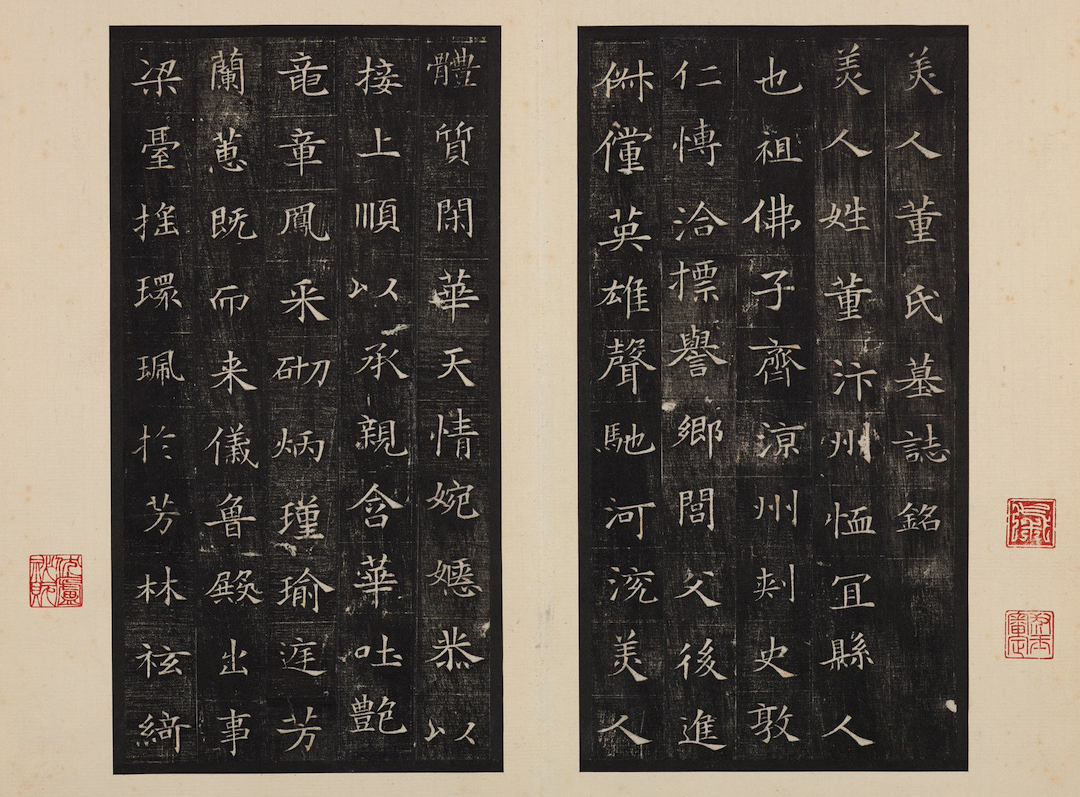 美人董氏墓誌銘
美人姓董汴州恤宜縣人
也祖佛子齊涼州刾史敦
仁博洽摽譽鄉閭父後進
俶儻英雄聲馳河沇美人
體質閑華天情婉嫕恭以
接上順以承親含華吐艷
龍章鳳采砌炳瑾瑜庭芳
蘭蕙既而来儀魯殿出事
梁臺搖環珮於芳林袨綺